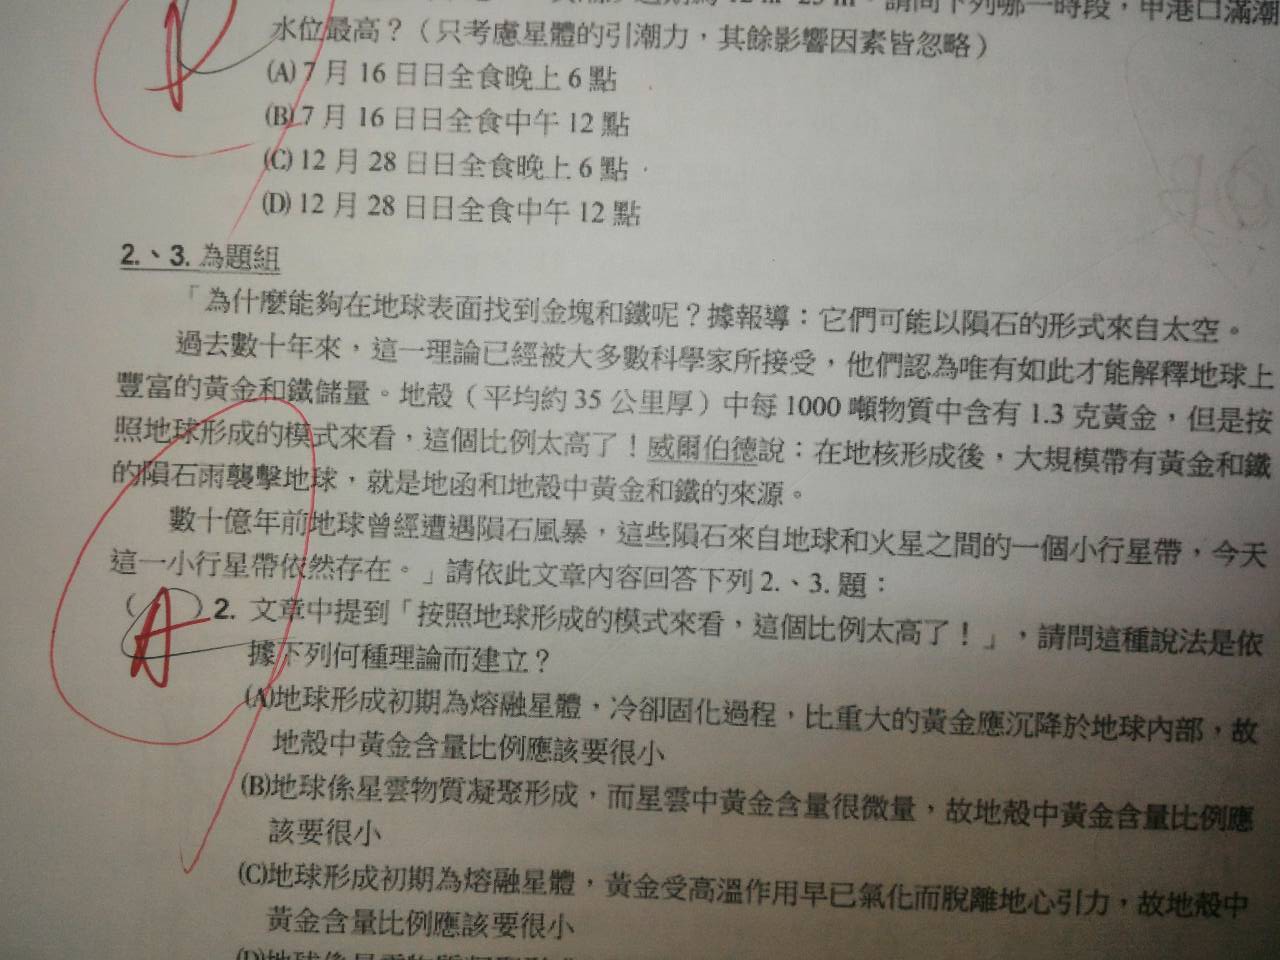 請問下列哪一時段，甲港口滿潮
水位最高？（只考慮星體的引潮力，其餘影響因素皆忽略）
(A) 7 月 16 日日全食晚上 6 點
(B) 7 月 16 日日全食中午 12 點
(C) 12 月 28 日日全食晚上 6 點
(D) 12 月 28 日日全食中午 12 點
2.、3. 為題組
「為什麼能夠在地球表面找到金塊和鐵呢？據報導：它們可能以隕石的形式來自太空。
過去數十年來，這一理論已經被大多數科學家所接受，他們認為唯有如此才能解釋地球上
豐富的黃金和鐵儲量。地殼（平均約 35 公里厚）中每 1000 噸物質中含有 1.3 克黃金，但是按
照地球形成的模式來看，這個比例太高了！威爾伯德說：在地核形成後，大規模帶有黃金和鐵
的隕石雨襲擊地球，就是地函和地殼中黃金和鐵的來源。
數十億年前地球曾經遭遇隕石風暴，這些隕石來自地球和火星之間的一個小行星帶，今天
這一小行星帶依然存在。」請依此文章內容回答下列 2.、3. 題：
（A）2. 文章中提到「按照地球形成的模式來看，這個比例太高了！」，請問這種說法是依
據下列何種理論而建立？
(A)地球形成初期為熔融星體，冷卻固化過程，比重大的黃金應沉降於地球內部，故
地殼中黃金含量比例應該要很小
(B)地球係星雲物質凝聚形成，而星雲中黃金含量很微量，故地殼中黃金含量比例應
該要很小
(C)地球形成初期為熔融星體，黃金受高溫作用早已氣化而脫離地心引力，故地殼中
黃金含量比例應該要很小